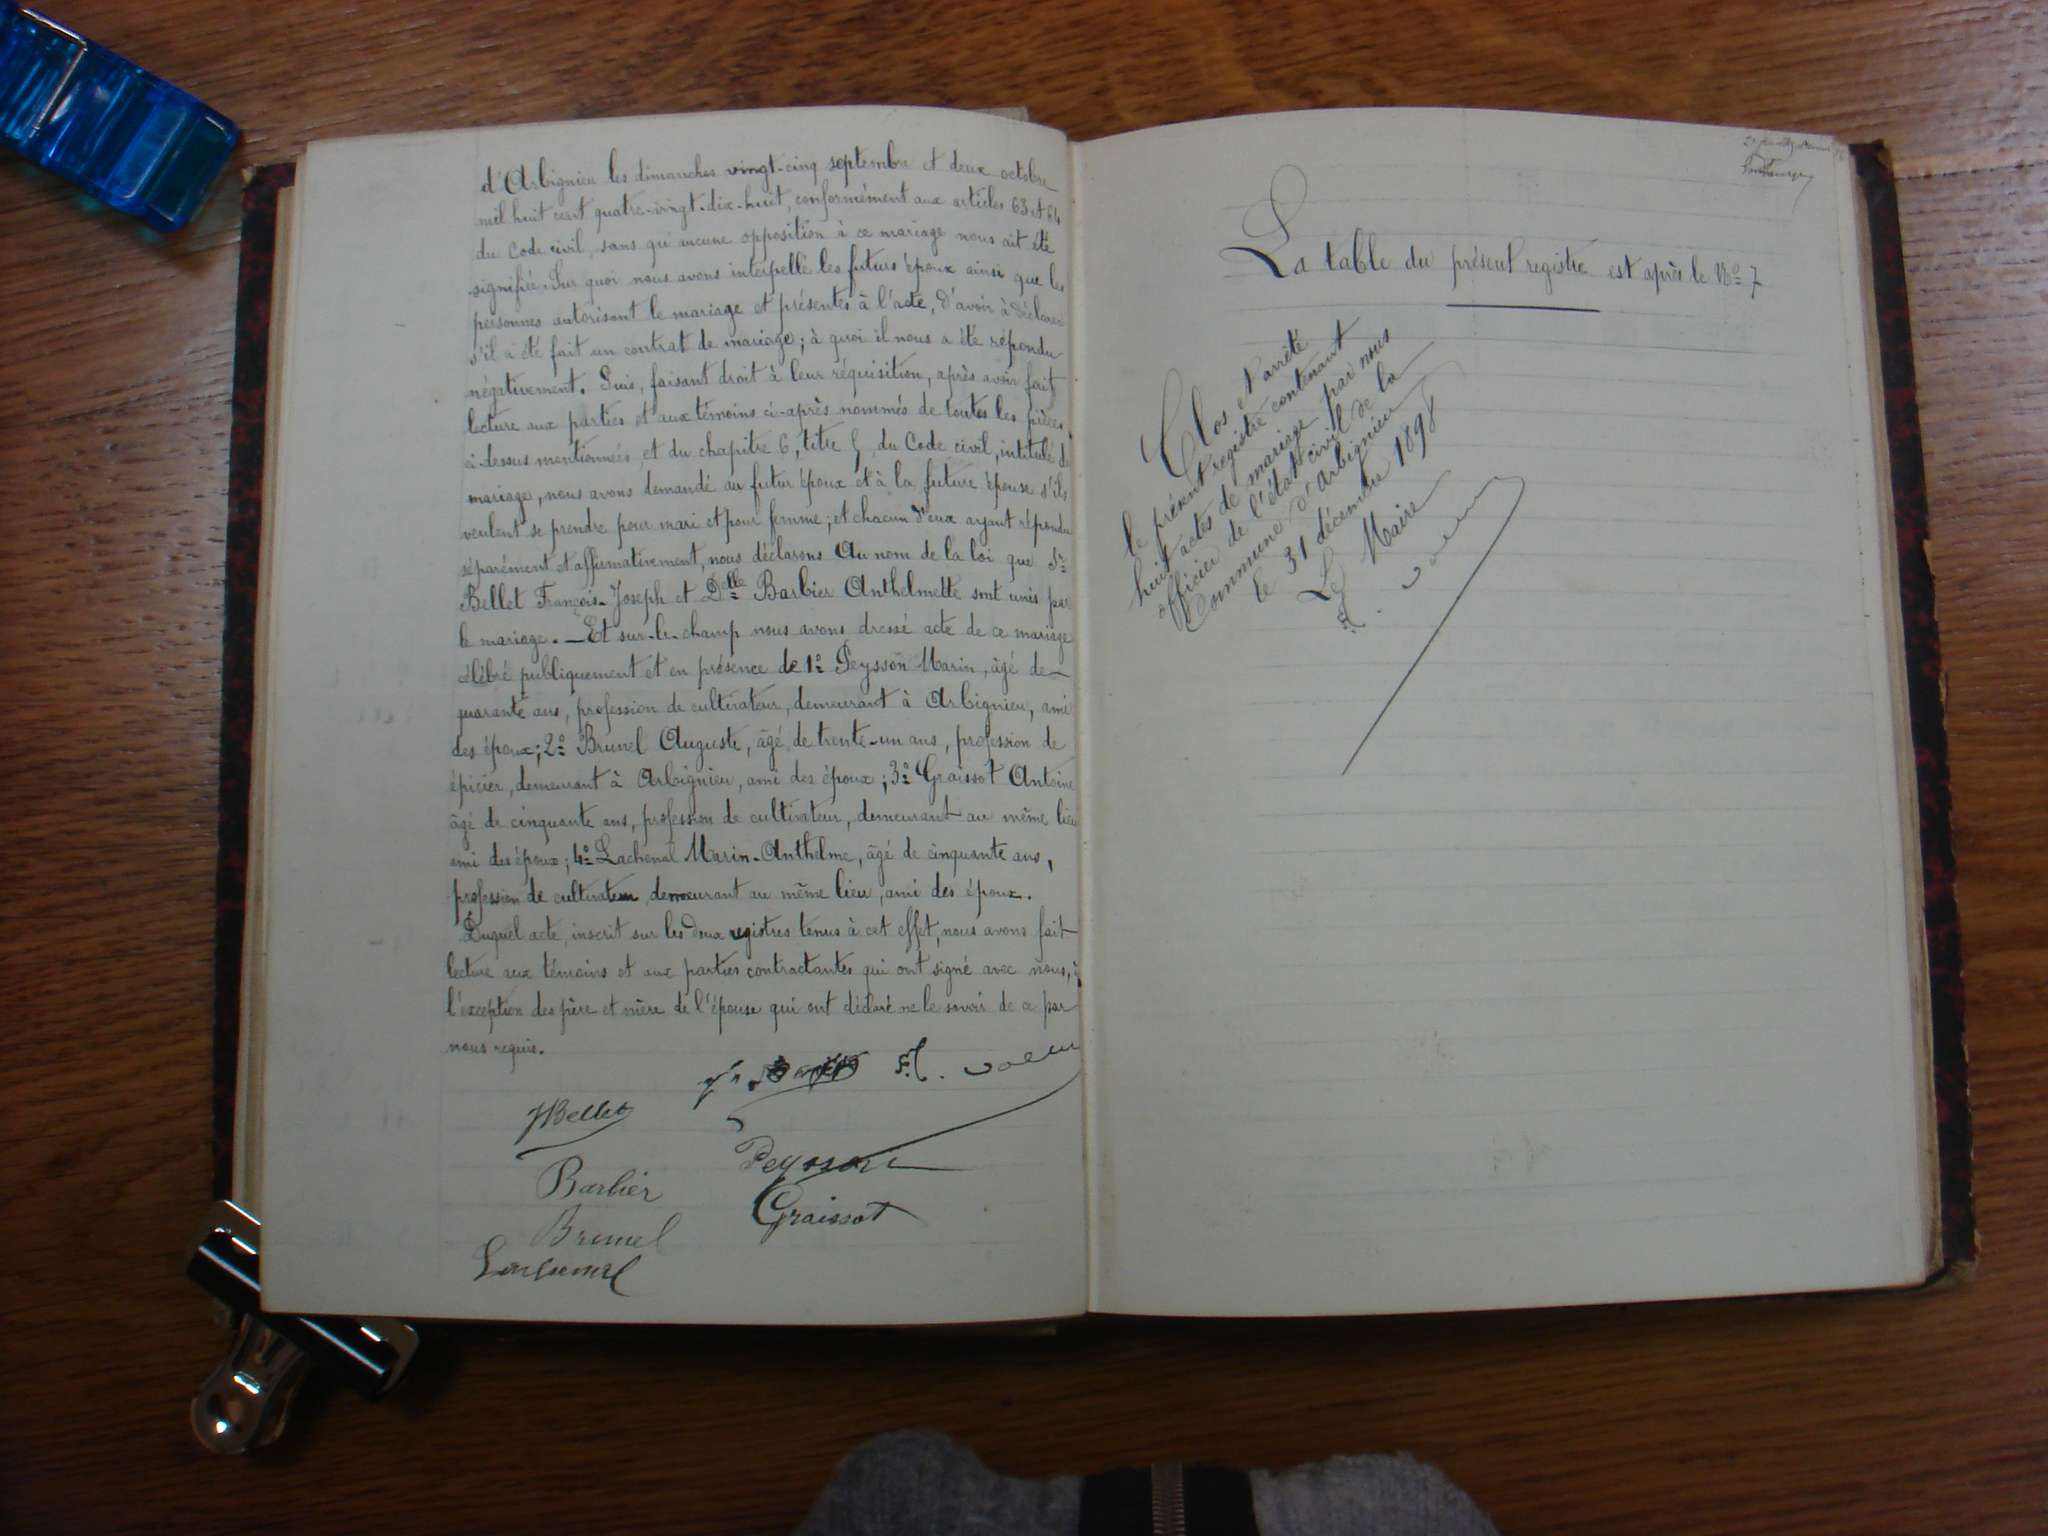 d'Arbignieu les dimanches vingt-cinq septembre et deux octobre
mil huit cent quatre-vingt-dix-huit, conformément aux articles 63 et 64
du Code civil, sans qu'aucune opposition à ce mariage nous ait été
signifiée. Sur quoi nous avons interpellé les futurs époux ainsi que les
personnes autorisant le mariage et présentes à l'acte, d'avoir à déclarer
s'il a été fait un contrat de mariage; à quoi il nous a été répondu
négativement. Puis, faisant droit à leur réquisition, après avoir fait
lecture aux parties et aux témoins ci-après nommés de toutes les pièces
ci-dessus mentionnées, et du chapitre 6, titre 5, du Code civil, intitulé du
mariage, nous avons demandé au futur époux et à la future épouse s'ils
veulent se prendre pour mari et pour femme; et chacun d'eux ayant répondu
séparément et affirmativement, nous déclarons Au nom de la loi que Sr
Bellet François-Joseph et Delle Barbier Anthelmette sont unis par
le mariage. — Et sur-le-champ nous avons dressé acte de ce mariage
célébré publiquement et en présence de 1º Peysson Marin, âgé de
quarante ans, profession de cultivateur, demeurant à Arbignieu, ami
des époux; 2º Brunel Auguste, âgé de trente-un ans, profession de
épicier, demeurant à Arbignieu, ami des époux; 3º Graissot Antoine
âgé de cinquante ans, profession de cultivateur, demeurant au même lieu
ami des époux; 4º Lachenal Marin-Anthelme, âgé de cinquante ans,
profession de cultivateur demeurant au même lieu, ami des époux.
Duquel acte, inscrit sur les deux registres tenus à cet effet, nous avons fait
lecture aux témoins et aux parties contractantes qui ont signé avec nous, à
l'exception des père et mère de l'épouse qui ont déclaré ne le savoir de ce par
nous requis.
JBellet
Barbier
Peysson
Graissot
Brunel
Lachenal
La table du présent registre est après le Nº 7
Clos et arrêté
le présent registre contenant
huit actes de mariage par nous
officier de l'état civil de la
Commune d'Arbignieu
le 31 décembre 1898
Le Maire